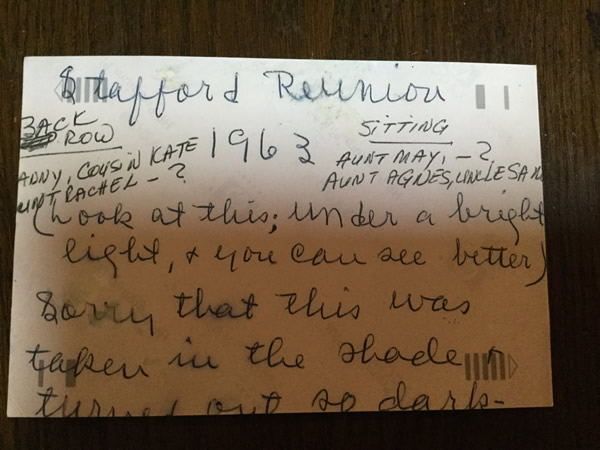 Stafford Reunion
BACK
ROW
1963
SITTING
ANNY, COUSIN KATE
AUNT RACHEL - ?
AUNT MAY, - ?
AUNT AGNES, UNCLE SAM
(Look at this; under a bright
light, & you can see better)
Sorry that this was
taken in the shade &
turned out so dark-